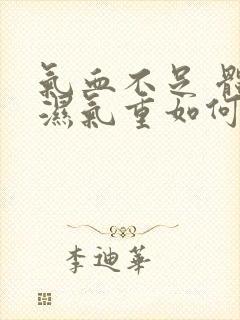 氣血不足 體
濕氣重如何
李迪華